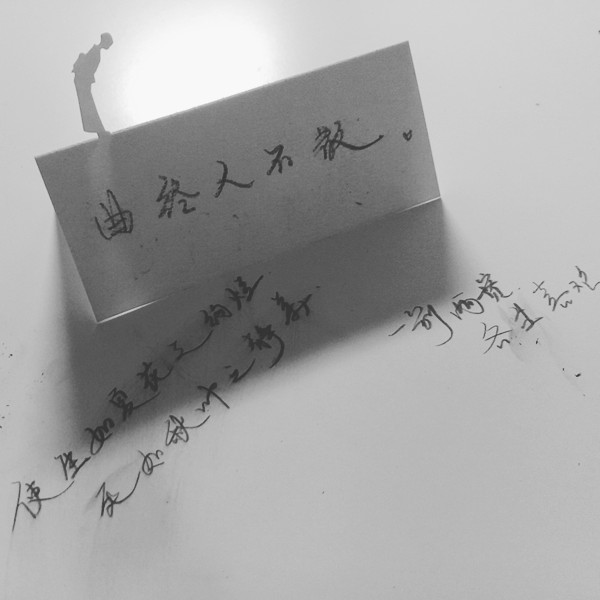 曲终人不散.
使生如夏花之绚烂
死如秋叶之静美.
一别两宽.
各生喜欢